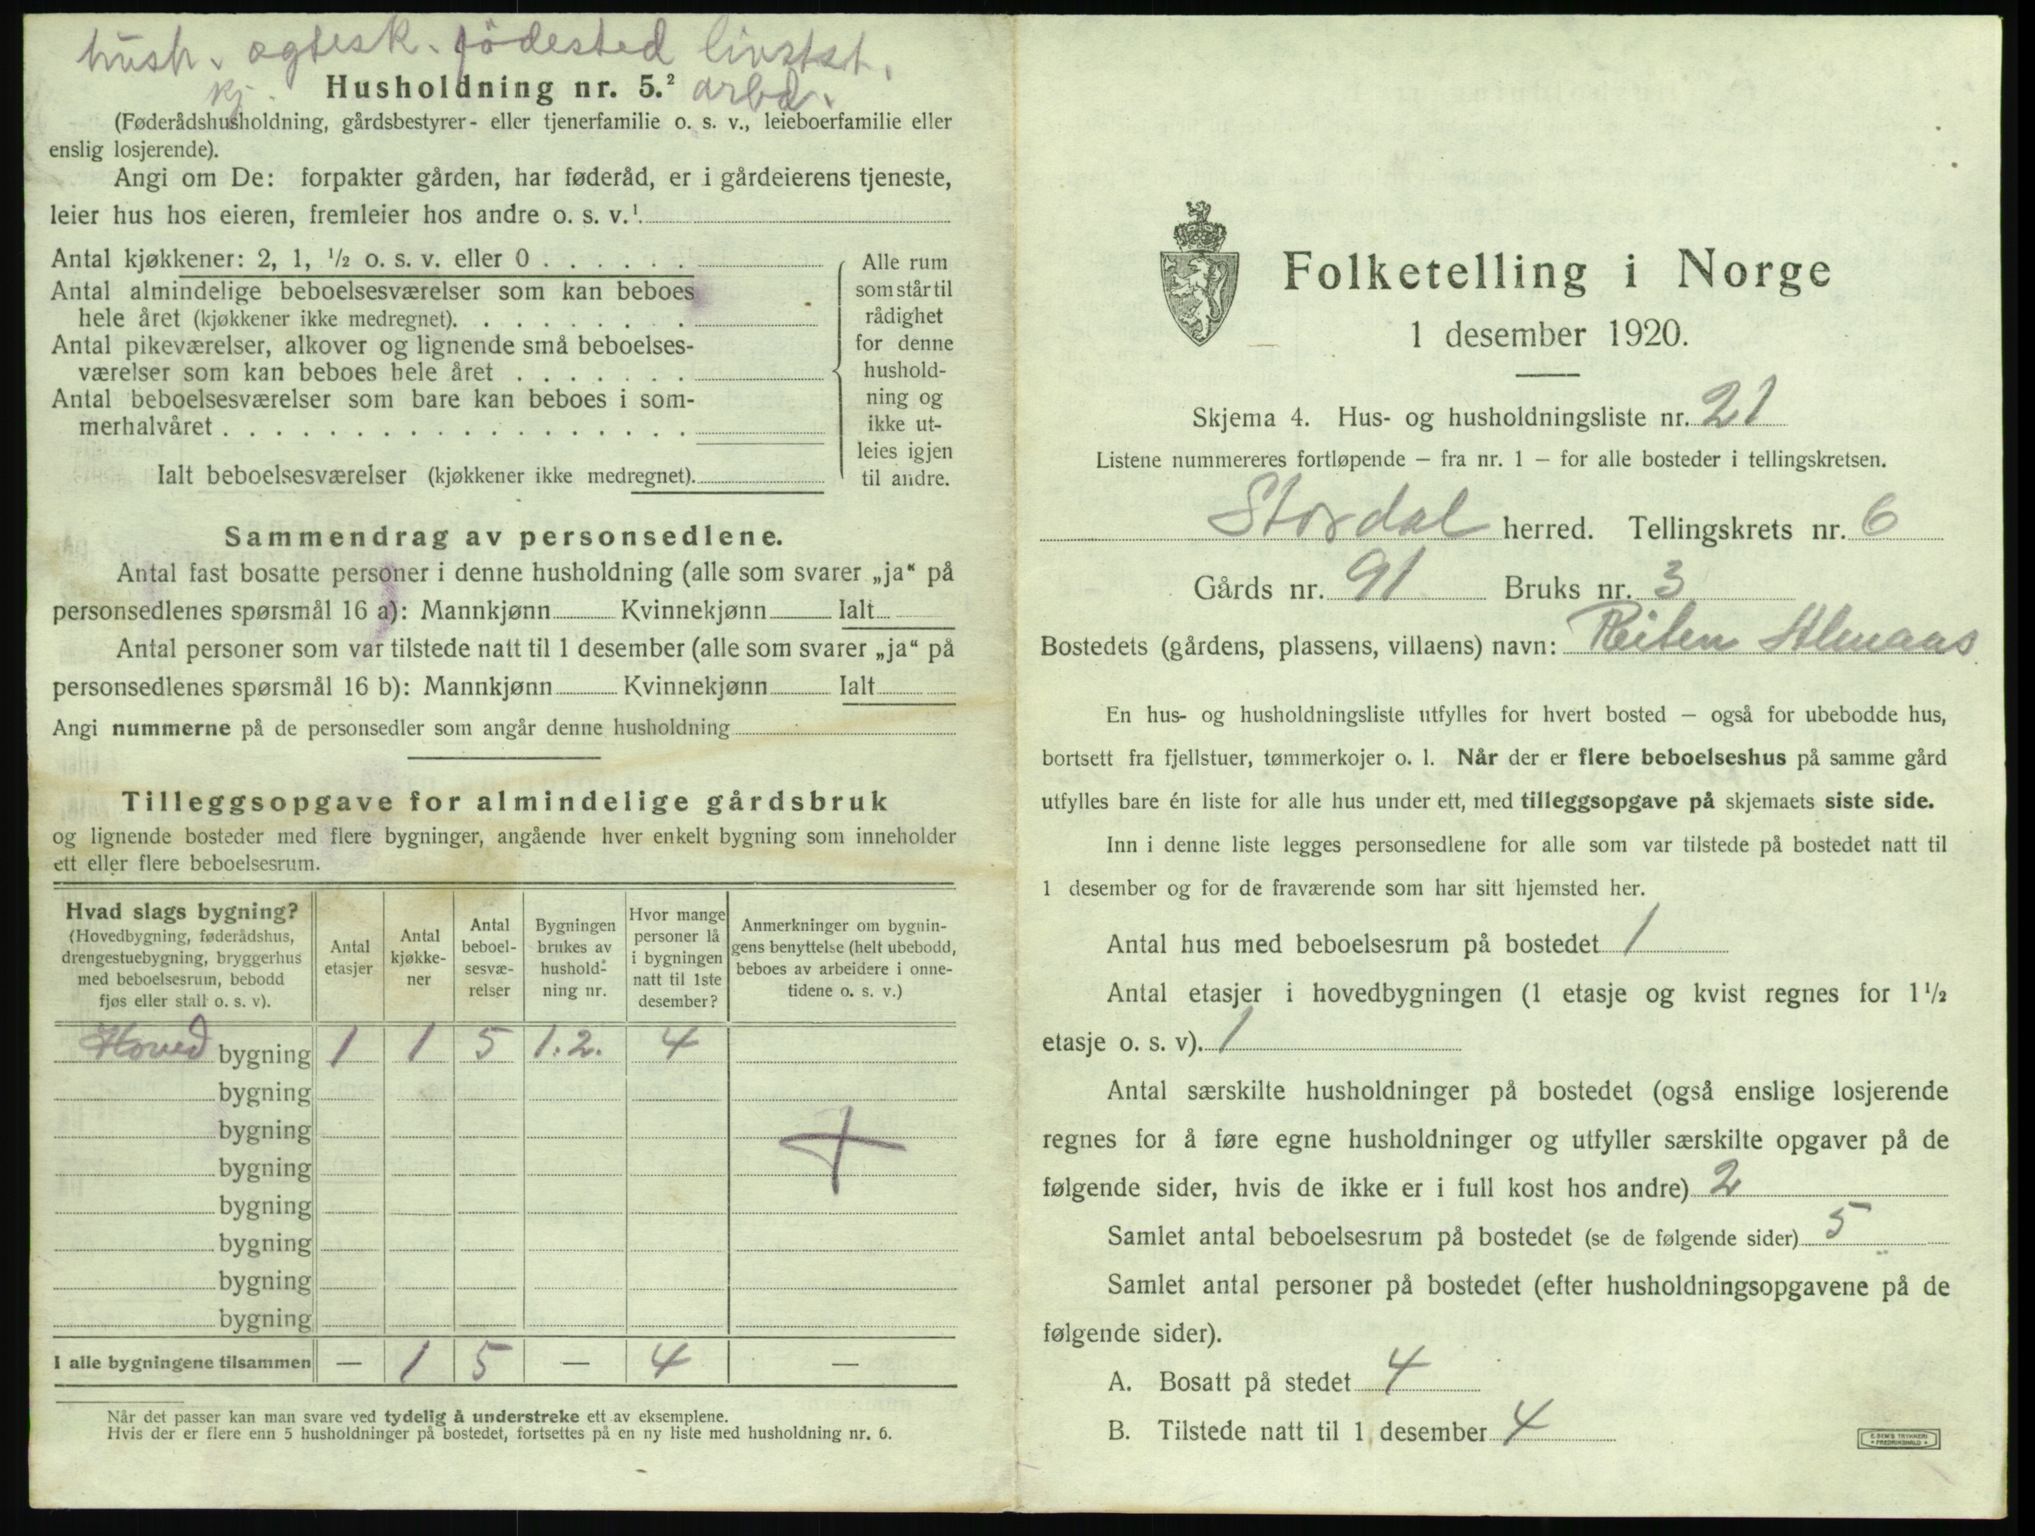 hush. ogtesk. fødested livstst.
kj. arbd.
Husholdning nr. 5.²
(Føderådshusholdning, gårdsbestyrer- eller tjenerfamilie o. s. v., leieboerfamilie eller
enslig losjerende).
Angi om De: forpakter gården, har føderåd, er i gårdeierens tjeneste,
leier hus hos eieren, fremleier hos andre o. s. v.¹
Antal kjøkkener: 2, 1, ½ o. s. v. eller 0 . . . . . .
Antal almindelige beboelsesværelser som kan beboes
hele året (kjøkkener ikke medregnet). . . . . . . . .
Antal pikeværelser, alkover og lignende små beboelses-
værelser som kan beboes hele året . . . . . . .
Antal beboelsesværelser som bare kan beboes i som-
merhalvåret . . . . . . . . . . . . . . . . . .
Ialt beboelsesværelser (kjøkkener ikke medregnet)
Alle rum
som står til
rådighet
for denne
hushold-
ning og
ikke ut-
leies igjen
til andre.
Sammendrag av personsedlene.
Antal fast bosatte personer i denne husholdning (alle som svarer „ja“ på
personsedlenes spørsmål 16 a): Mannkjønn Kvinnekjønn Ialt
Antal personer som var tilstede natt til 1 desember (alle som svarer „ja“ på
personsedlenes spørsmål 16 b): Mannkjønn Kvinnekjønn Ialt
Angi nummerne på de personsedler som angår denne husholdning
Tilleggsopgave for almindelige gårdsbruk
og lignende bosteder med flere bygninger, angående hver enkelt bygning som inneholder
ett eller flere beboelsesrum.
Hvad slags bygning?
(Hovedbygning, føderådshus,
drengestuebygning, bryggerhus
med beboelsesrum, bebodd
fjøs eller stall o. s. v).
Antal
etasjer
Antal
kjøkke-
ner
Antal
beboel-
sesvæ-
relser
Bygningen
brukes av
hushold-
ning nr.
Hvor mange
personer lå
i bygningen
natt til 1ste
desember?
Anmerkninger om bygnin-
gens benyttelse (helt ubebodd,
beboes av arbeidere i onne-
tidene o. s. v.)
Hoved bygning 1 1 5 1.2. 4
bygning
bygning
bygning
bygning
bygning
bygning
bygning
I alle bygningene tilsammen — 1 5 — 4 —
Når det passer kan man svare ved tydelig å understreke ett av eksemplene.
Hvis der er flere enn 5 husholdninger på bostedet, fortsettes på en ny liste med husholdning nr. 6.
Folketelling i Norge
1 desember 1920.
Skjema 4. Hus- og husholdningsliste nr. 21
Listene nummereres fortløpende – fra nr. 1 – for alle bosteder i tellingskretsen.
Stordal herred. Tellingskrets nr. 6
Gårds nr. 91 Bruks nr. 3
Bostedets (gårdens, plassens, villaens) navn: Reiten Almaas
En hus- og husholdningsliste utfylles for hvert bosted – også for ubebodde hus,
bortsett fra fjellstuer, tømmerkojer o. l. Når der er flere beboelseshus på samme gård
utfylles bare én liste for alle hus under ett, med tilleggsopgave på skjemaets siste side.
Inn i denne liste legges personsedlene for alle som var tilstede på bostedet natt til
1 desember og for de fraværende som har sitt hjemsted her.
Antal hus med beboelsesrum på bostedet 1
Antal etasjer i hovedbygningen (1 etasje og kvist regnes for 1½
etasje o. s. v). 1
Antal særskilte husholdninger på bostedet (også enslige losjerende
regnes for å føre egne husholdninger og utfyller særskilte opgaver på de
følgende sider, hvis de ikke er i full kost hos andre) 2
Samlet antal beboelsesrum på bostedet (se de følgende sider) 5
Samlet antal personer på bostedet (efter husholdningsopgavene på de
følgende sider).
A. Bosatt på stedet 4
B. Tilstede natt til 1 desember 4
E. SEM'S TRYKKERI
FREDRIKSHALD